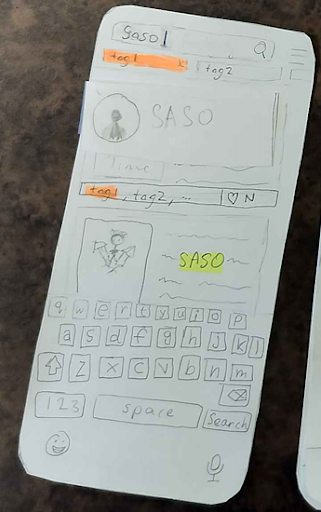 Saso
tag1 x tag2
SASO
tag, tag2, ... N
SASO
q w e r t y u i o p
a s d f g h j k l
z x c v b n m
123 space Search